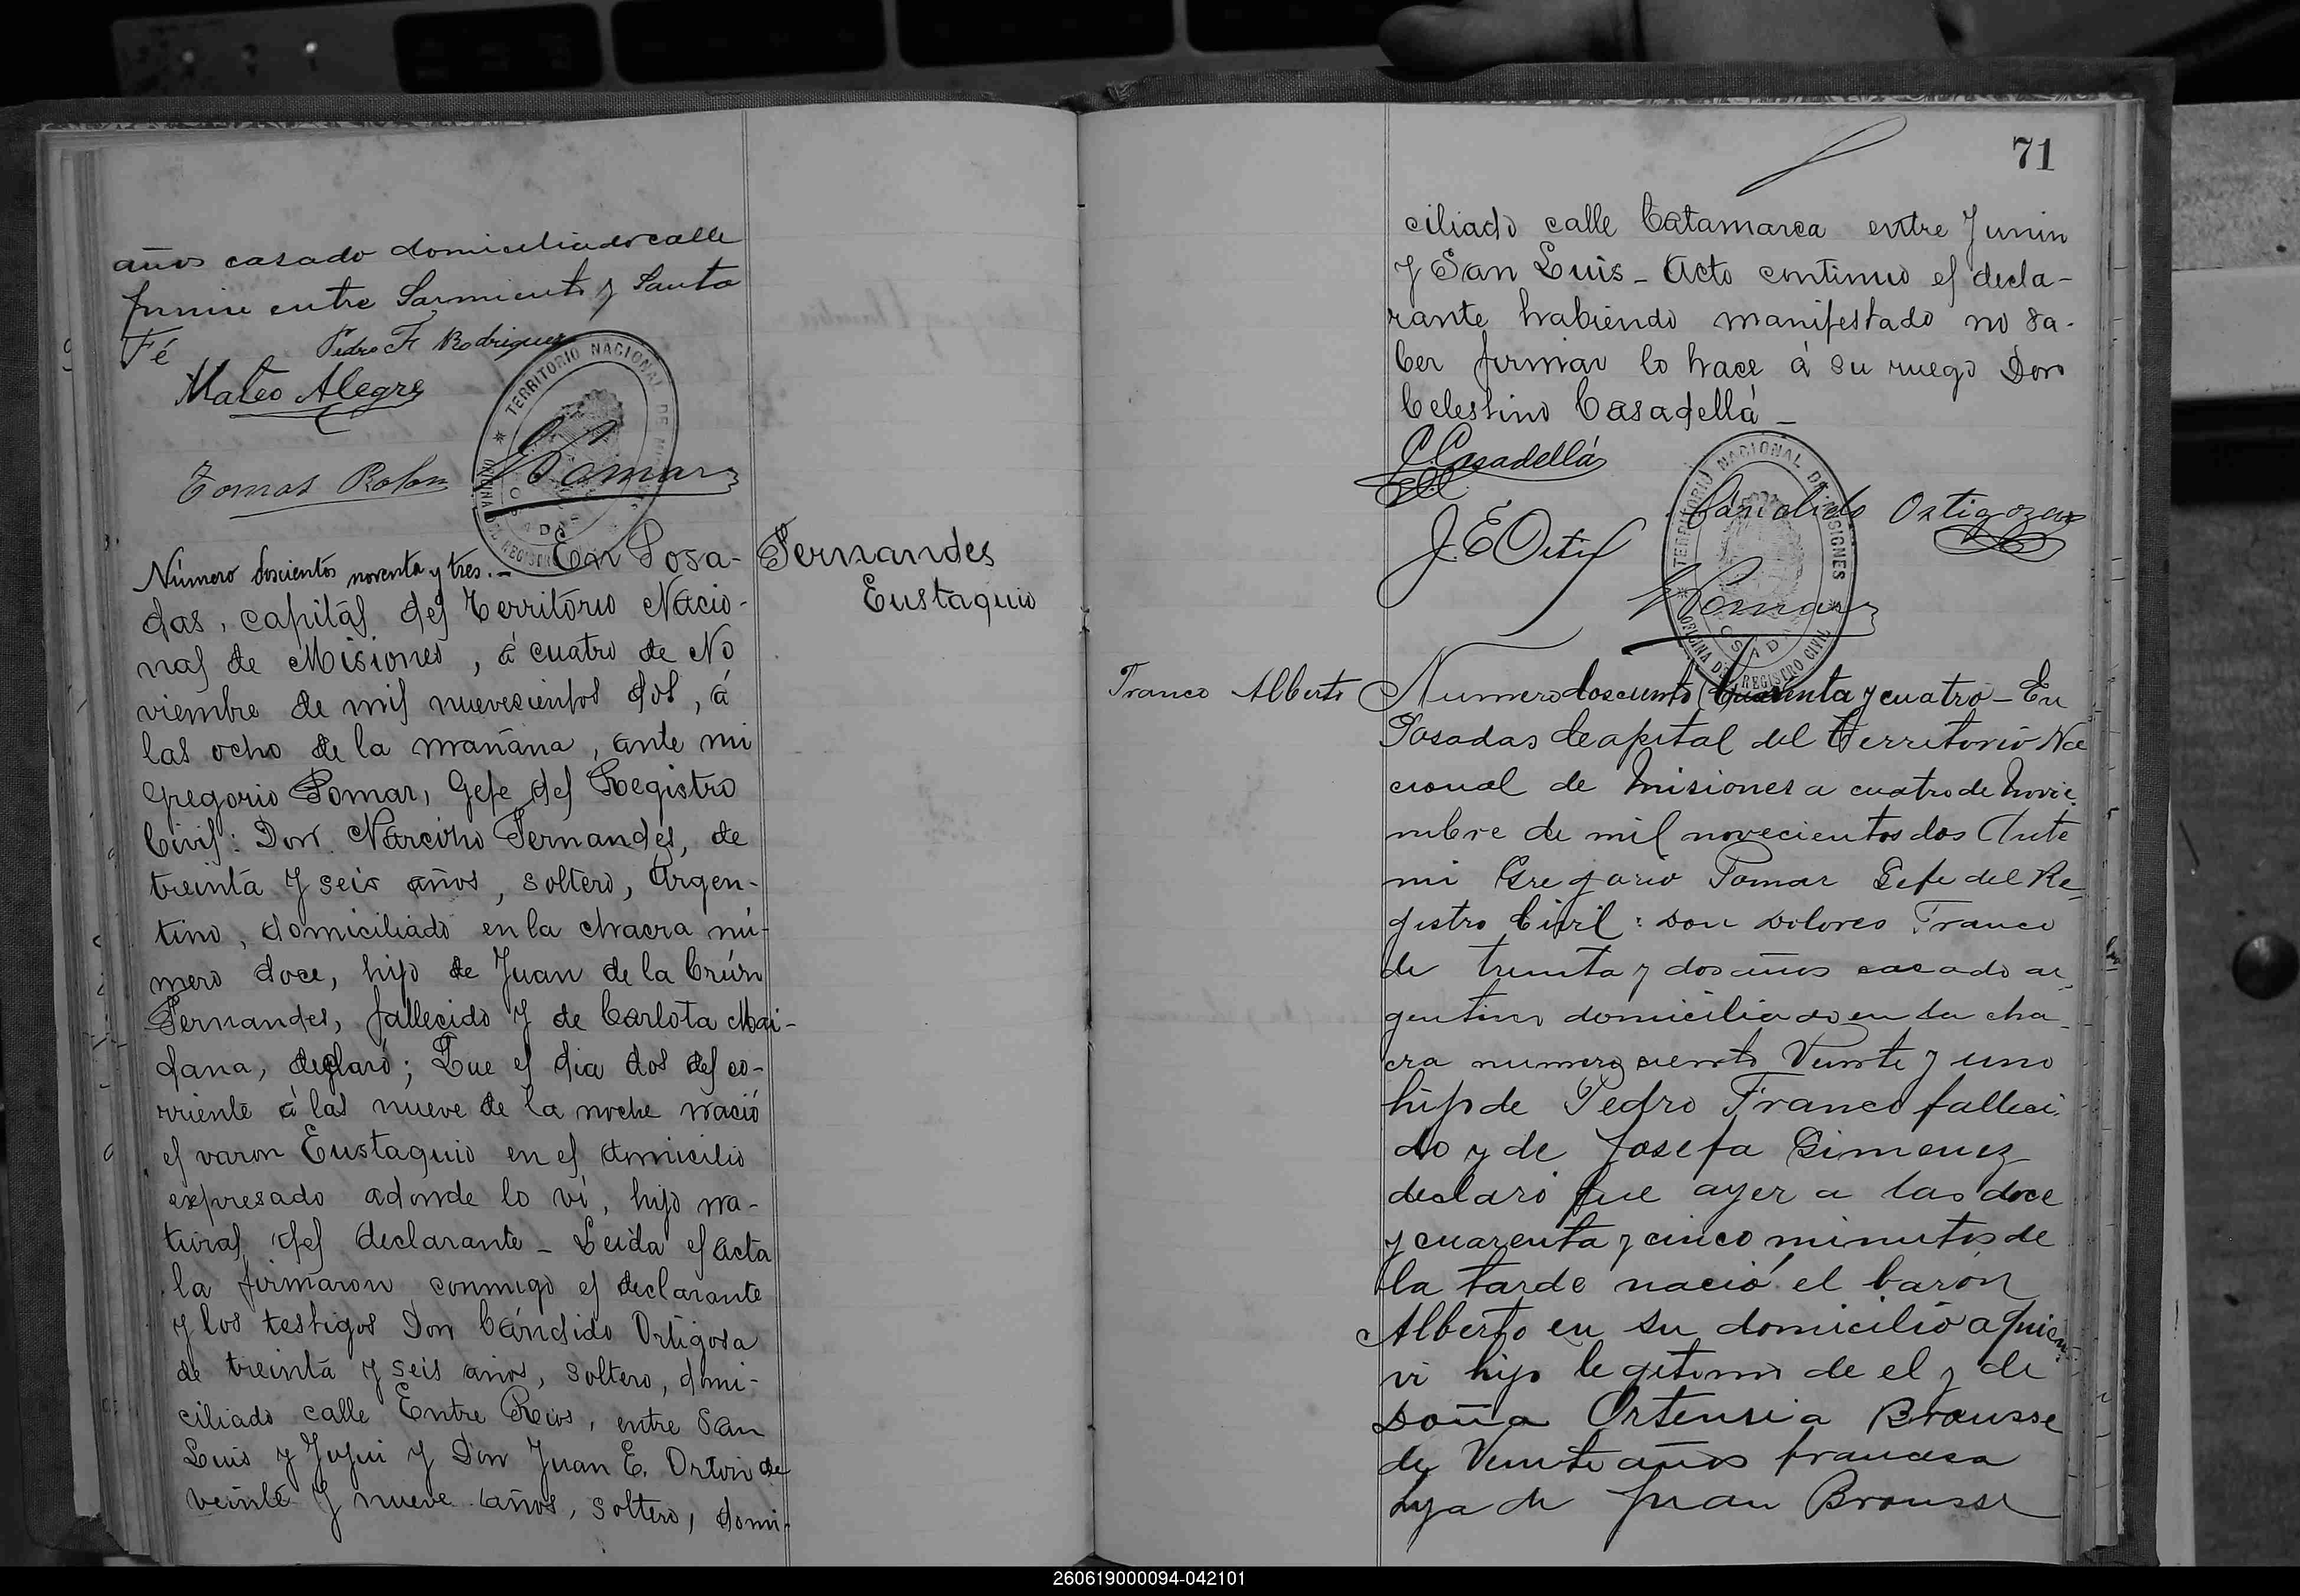 años casado domiciliado calle
Junin entre Sarmiento y Santa
Fé
Pedro F Rodriguez
Mateo Alegre
Tomas Rolon
GPomar
TERRITORIO NACIONAL DE MISIONES
OFICINA DEL REGISTRO CIVIL
POSADAS
Número doscientos noventa y tres.- En Posa-
das, capital del Territorio Nacio-
nal de Misiones, á cuatro de No
viembre de mil nuevecientos dos, á
las ocho de la mañana, ante mi
Gregorio Pomar, Gefe del Registro
Civil: Don Narciso Fernandes, de
treinta y seis años, soltero, Argen-
tino, domiciliado en la chacra nú-
mero doce, hijo de Juan de la Crúz
Fernandes, fallecido y de Carlota Mai-
dana, declaró; Que el dia dos del co-
rriente á las nueve de la noche nació
el varon Eustaquio en el domicilio
expresado adonde lo ví, hijo na-
tural del declarante - Leida el acta
la firmaron conmigo el declarante
y los testigos Don Cándido Ortigosa
de treinta y seis años, soltero, domi-
ciliado calle Entre Rios, entre San
Luis y Jujui y Don Juan E. de
veinte y nueve años, soltero, domi-
Fernandes
Eustaquio
71
ciliado calle Catamarca entre Junin
y San Luis - Acto continuo el decla-
rante habiendo manifestado no sa-
ber firmar lo hace á su ruego Don
Celestino Casadellá -
C. Casadellá
Candido Ortigoza
J. E. Ortiz
GPomar
TERRITORIO NACIONAL DE MISIONES
OFICINA DEL REGISTRO CIVIL
POSADAS
Franco Alberto
Numero doscientos y cuatro - En
Posadas Capital del Territorio Na
cional de Misiones a cuatro de Novie
mbre de mil novecientos dos Ante
mi Gregorio Pomar Gefe del Re
gistro Civil: Don Dolores Franco
de treinta y dos años casado ar
gentino domiciliado en la cha
cra numero ciento Veinte y uno
hijo de Pedro Franco falleci
do y de Josefa Gimenez
declaró que ayer a las doce
y cuarenta y cinco minutos de
la tarde nació el baron
Alberto en su domicilio a quien
vi hijo legitimo de el y de
Doña Ortensia Brousse
de Veinte años francesa
hija de Juan Brousse
260619000094-042101